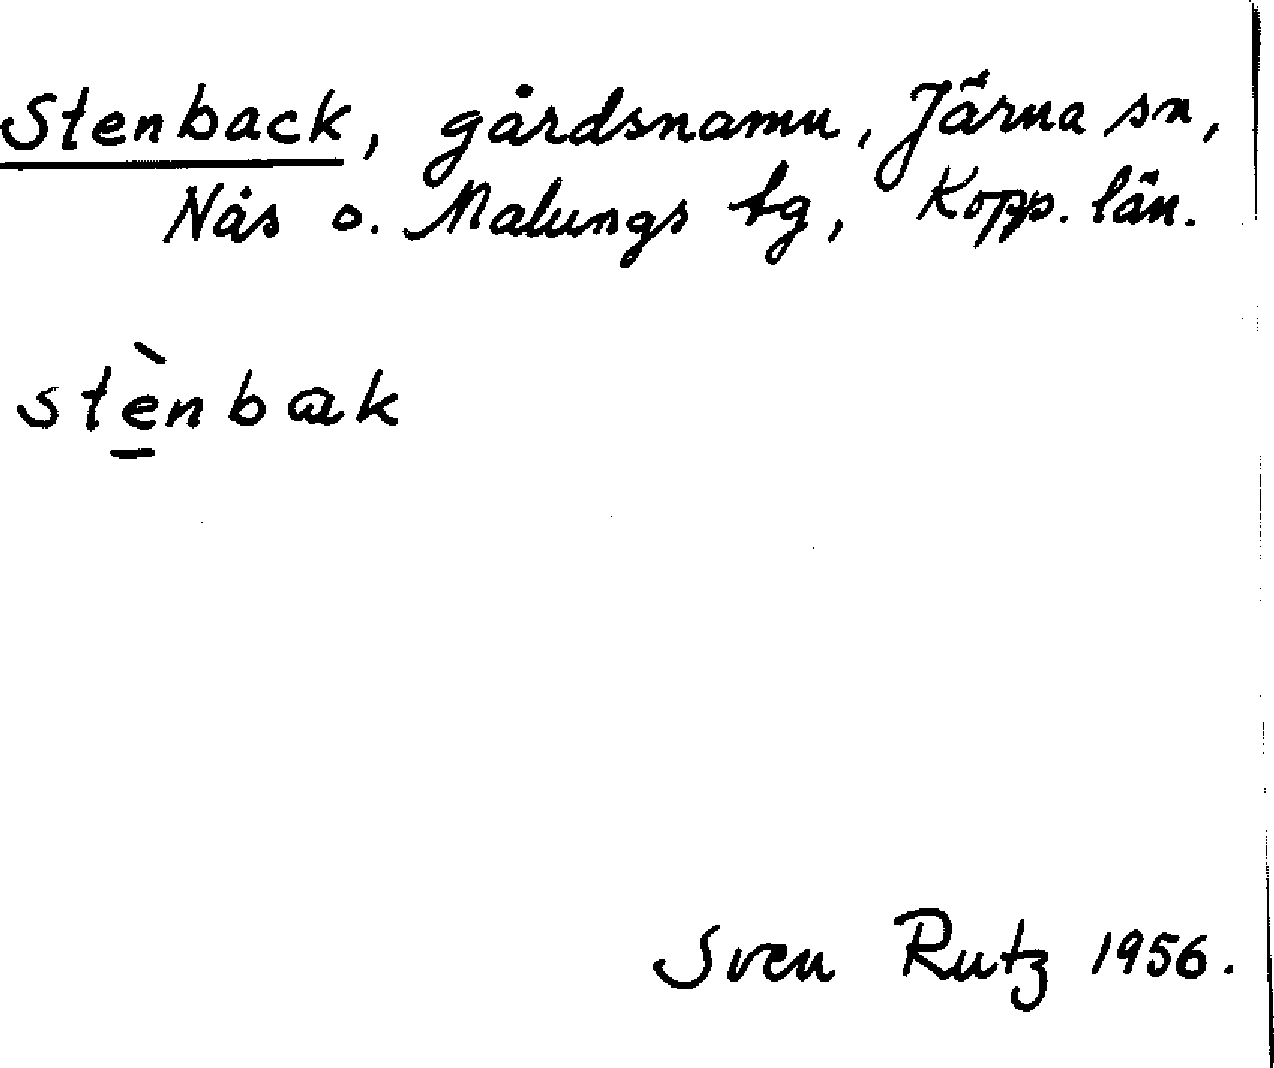 Stenback, gårdsnamn, Järna sn,
Nås o. Malungs tg, Kopp. län.
stènbak
Sven Rutz 1956.